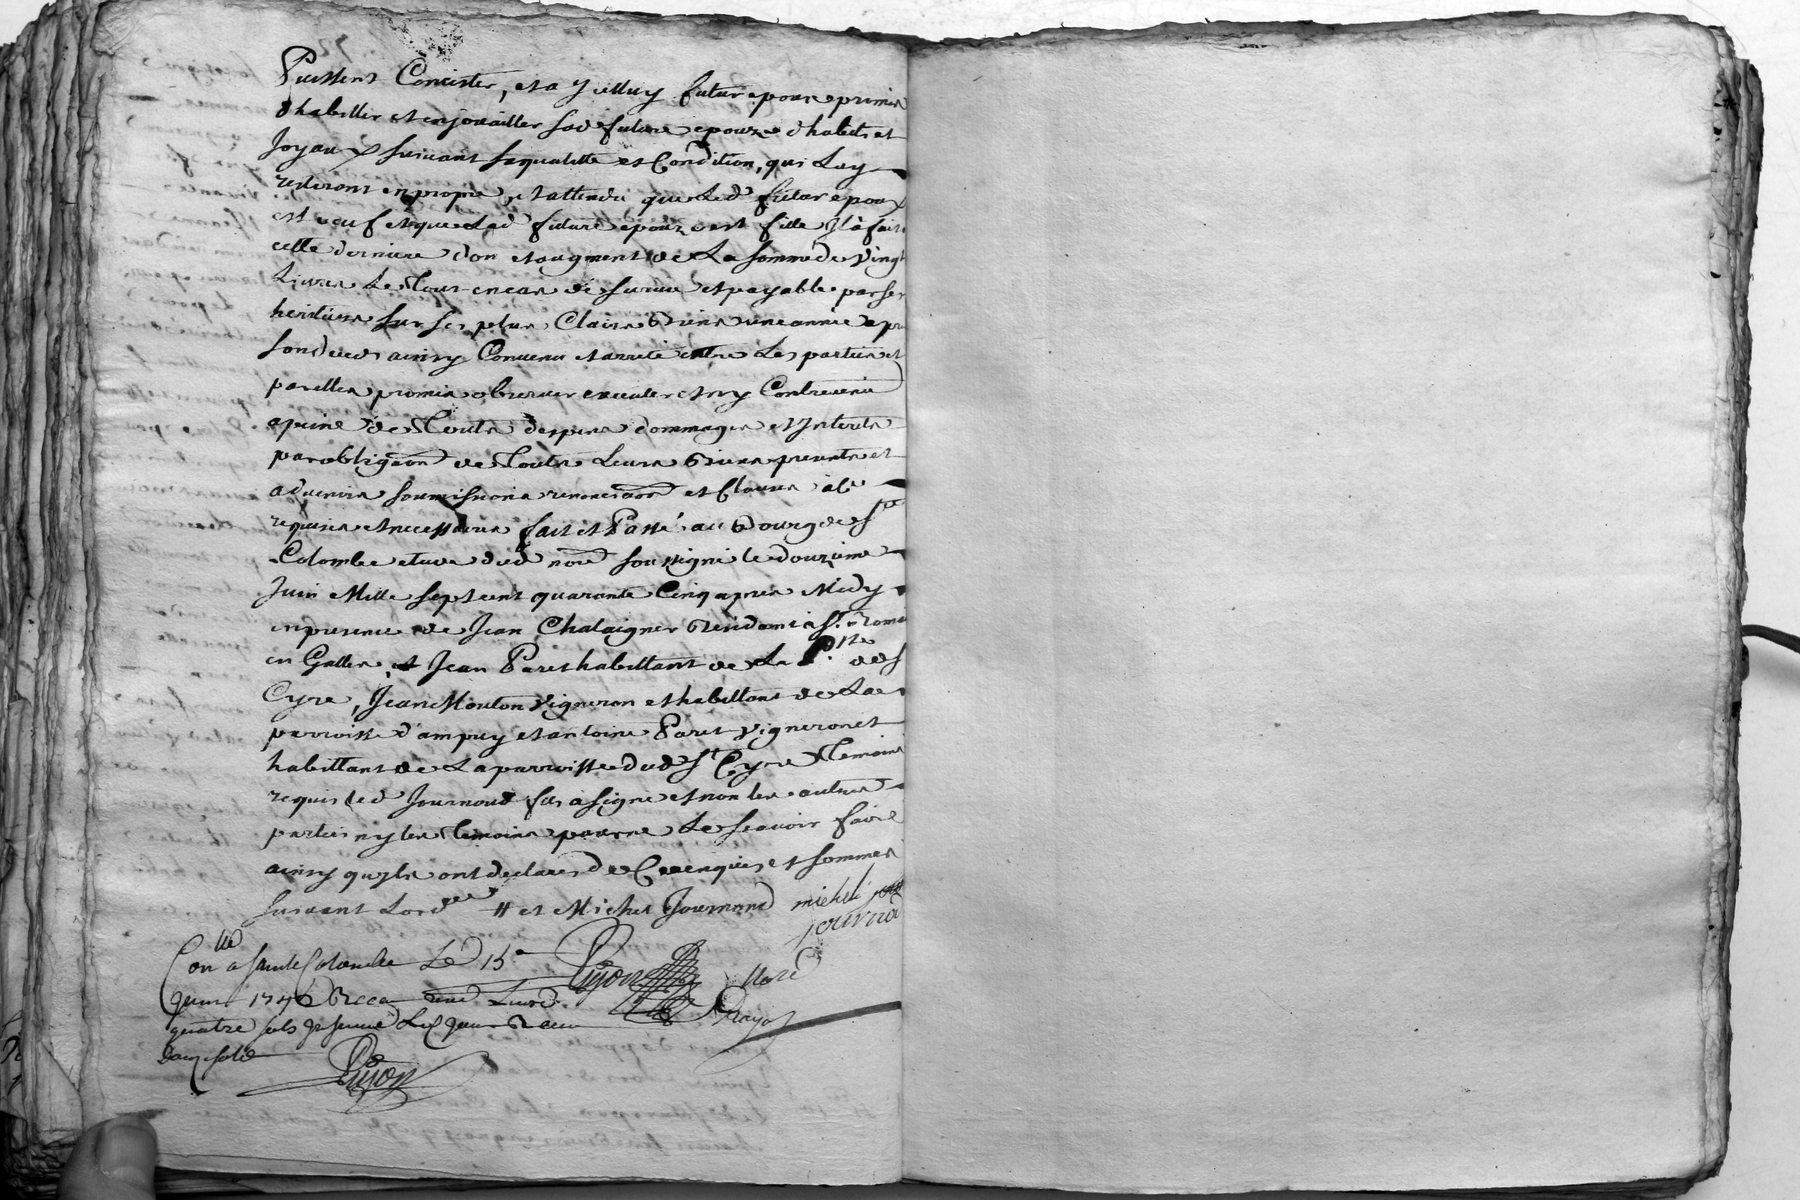 Puissent Concister, et a Jcelluy futur epoux promis
d'habeller et enjouailler sad. future epouze d'habits et
Joyaux suivant sa qualitté et Condition, qui Luy
resteront en propre, et attendu que Led. futur epoux
est veuf et que Lad. future epouze est fille Jl a fait a
cette derniere don et augment de La somme de Vingt
Livres Le Tout en cas de survie et payable par ses
heritiers sur ses plus Clairs Biens une année apres
son deces ainsy Convenu et arreté entre Les parties et
par elles promis observer executer et n'y Contrevenir
a peine de Touts depens dommages et Jnterets
par obligaõn de Touts Leurs Biens presents et
advenirs soumissions renonciaõn et Clauses a Ce
requises et necessaires fait et Passé au Bourg de Ste
Colombe etude dud. nore soussigné le douzieme
Juin Mille sept cent quarante Cinq apres Midy
en presence de Jean Chalaigner Residant a St. Romain
en Galles, et Jean Paret habittant de La P.sse de St
Cyre, Jean Mouton Vigneron et habittant de La
parroisse d'ampuy et antoine Paret Vigneron et
habittant de La parroisse dud. St Cyre Temoins
requis led. Journoud fils a signé et non les autres
parties ny les Temoins pour ne Le scavoir faire
ainsy qu'jls ont declarés de Ce enquis et sommés
suivant Lordce // et Michel Journoud michel
journou
Conllé a Sainte Colombe Le 15e Pijon Nore
Juin 174 Recu Livre Royal
quatre sols Reserve
Pijon